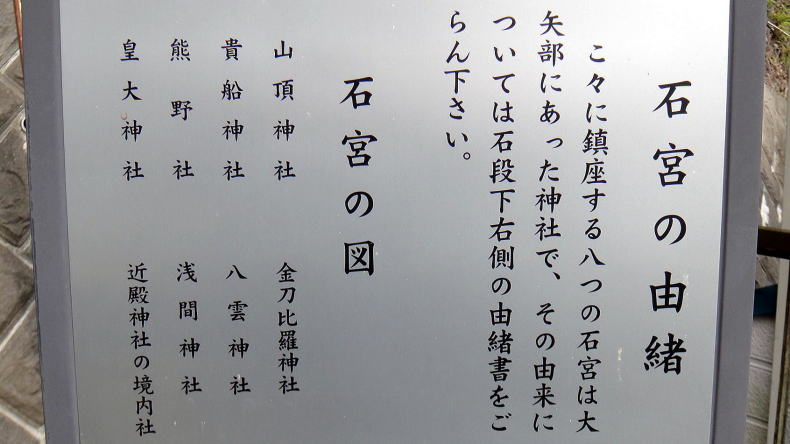 石宮の由緒
こ々に鎮座する八つの石宮は大
矢部にあった神社で、その由来に
ついては石段下右側の由緒書をご
らん下さい。
石宮の図
山頂神社
金刀比羅神社
貴船神社
八雲神社
熊野社
浅間神社
皇大神社
近殿神社の境内社